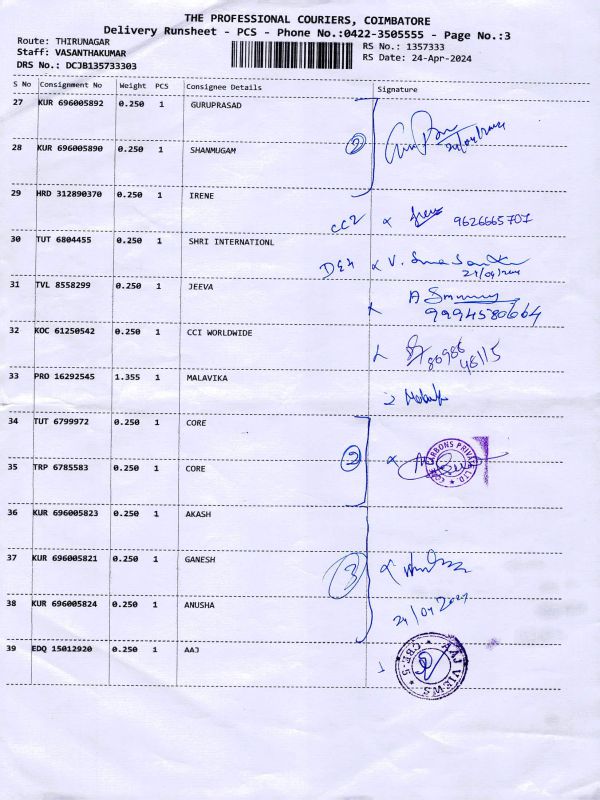 THE PROFESSIONAL COURIERS, COIMBATORE
Delivery Runsheet - PCS - Phone No.:0422-3505555 - Page No.:3
Route: THIRUNAGAR
Staff: VASANTHAKUMAR
DRS No.: DCJB135733303
RS No.: 1357333
RS Date: 24-Apr-2024
S No Consignment No Weight PCS Consignee Details Signature
27 KUR 696005892 0.250 1 GURUPRASAD
28 KUR 696005890 0.250 1 SHANMUGAM
2
24/04/2024
29 HRD 312890370 0.250 1 IRENE
CC2 9626665707
30 TUT 6804455 0.250 1 SHRI INTERNATIONL
V.
31 TVL 8558299 0.250 1 JEEVA
9994580664
32 KOC 61250542 0.250 1 CCI WORLDWIDE
80986
48115
33 PRO 16292545 1.355 1 MALAVIKA
34 TUT 6799972 0.250 1 CORE
35 TRP 6785583 0.250 1 CORE
2
CARBONS PRIVATE LTD.
36 KUR 696005823 0.250 1 AKASH
37 KUR 696005821 0.250 1 GANESH
3
38 KUR 696005824 0.250 1 ANUSHA
24/04/2024
39 EDQ 15012920 0.250 1 AAJ
AAJ VIEWS
CBE-5